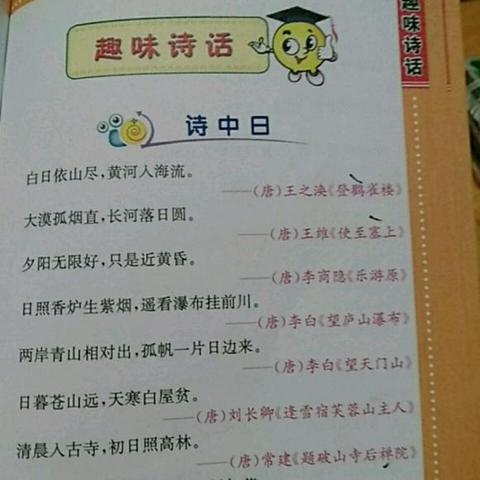 趣味诗话
趣味诗话
诗中日
白日依山尽,黄河入海流。
——(唐)王之涣《登鹳雀楼》
大漠孤烟直,长河落日圆。
——(唐)王维《使至塞上》
夕阳无限好,只是近黄昏。
——(唐)李商隐《乐游原》
日照香炉生紫烟,遥看瀑布挂前川。
——(唐)李白《望庐山瀑布》
两岸青山相对出,孤帆一片日边来。
——(唐)李白《望天门山》
日暮苍山远,天寒白屋贫。
——(唐)刘长卿《逢雪宿芙蓉山主人》
清晨入古寺,初日照高林。
——(唐)常建《题破山寺后禅院》